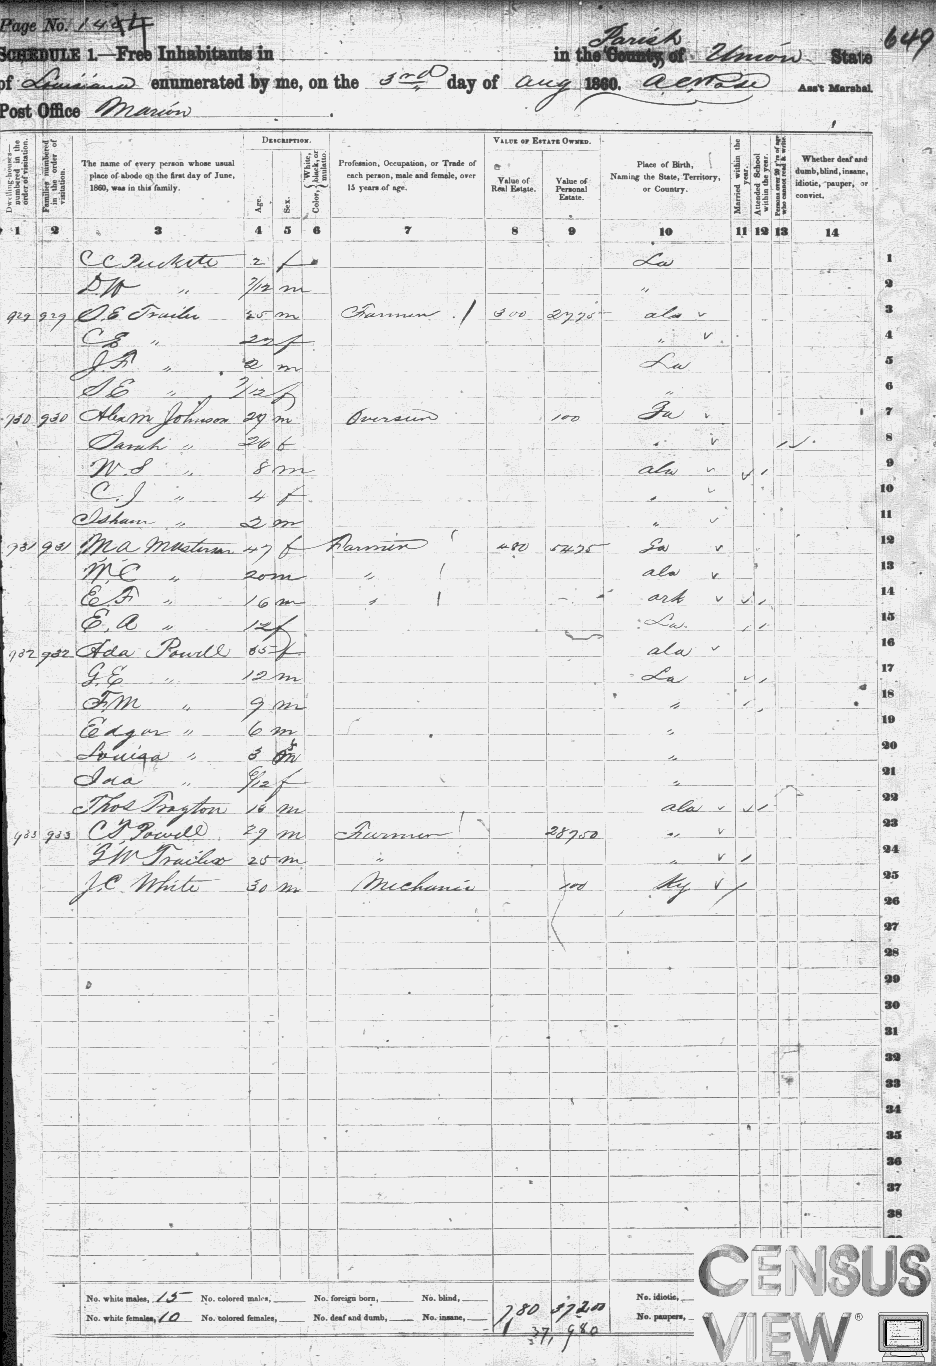 Page No. 144
649
SCHEDULE 1.—Free Inhabitants in in the Parish County of Union State
of Louisiana enumerated by me, on the 3rd day of Aug 1860. Ass't Marshal.
Post Office Marion
Dwelling-houses—numbered in the order of visitation.
Families numbered in the order of visitation.
The name of every person whose usual place of abode on the first day of June, 1860, was in this family.
DESCRIPTION.
Age.
Sex.
Color, White, black, or mulatto.
Profession, Occupation, or Trade of each person, male and female, over 15 years of age.
VALUE OF ESTATE OWNED.
Value of Real Estate.
Value of Personal Estate.
Place of Birth, Naming the State, Territory, or Country.
Married within the year.
Attended School within the year.
Persons over 20 y'rs of age who cannot read & write.
Whether deaf and dumb, blind, insane, idiotic, pauper, or convict.
1 2 3 4 5 6 7 8 9 10 11 12 13 14
C C Puckett 2 f La 1
D.W. " 7/12 m " 2
929 929 S.E. Trailor 25 m Farmer 300 2775 ala 3
C E " 22 f " 4
J.F. " 2 m La 5
S E " 7/12 f " 6
930 930 Alex M Johnson 29 m Overseer 100 Ga 7
Sarah " 26 f " 8
W.S " 8 m ala 9
C.J " 4 f " 10
Isham " 2 m " 11
931 931 M A Masterson 47 f Farmer 480 5475 Ga 12
W.C " 20 m " ala 13
E F " 16 m " ark 14
E. A " 12 f La 15
932 932 Ada Powell 35 f ala 16
G.E " 12 m La 17
F.M " 9 m " 18
Edgar " 6 m " 19
Louisa " 3 f " 20
Ida " 6/12 f " 21
Thos Trayton 16 m ala 22
933 933 C F Powell 29 m Farmer 28750 " 23
G.W Trailor 25 m " " 24
J.C. White 30 m Mechanic 100 Ky 25
26
27
28
29
30
31
32
33
34
35
36
37
38
No. white males, 15 No. colored males, No. foreign born, No. blind, 780 37200 No. idiotic,
No. white females, 10 No. colored females, No. deaf and dumb, No. insane, 37,980 No. paupers,
CENSUS
VIEW®